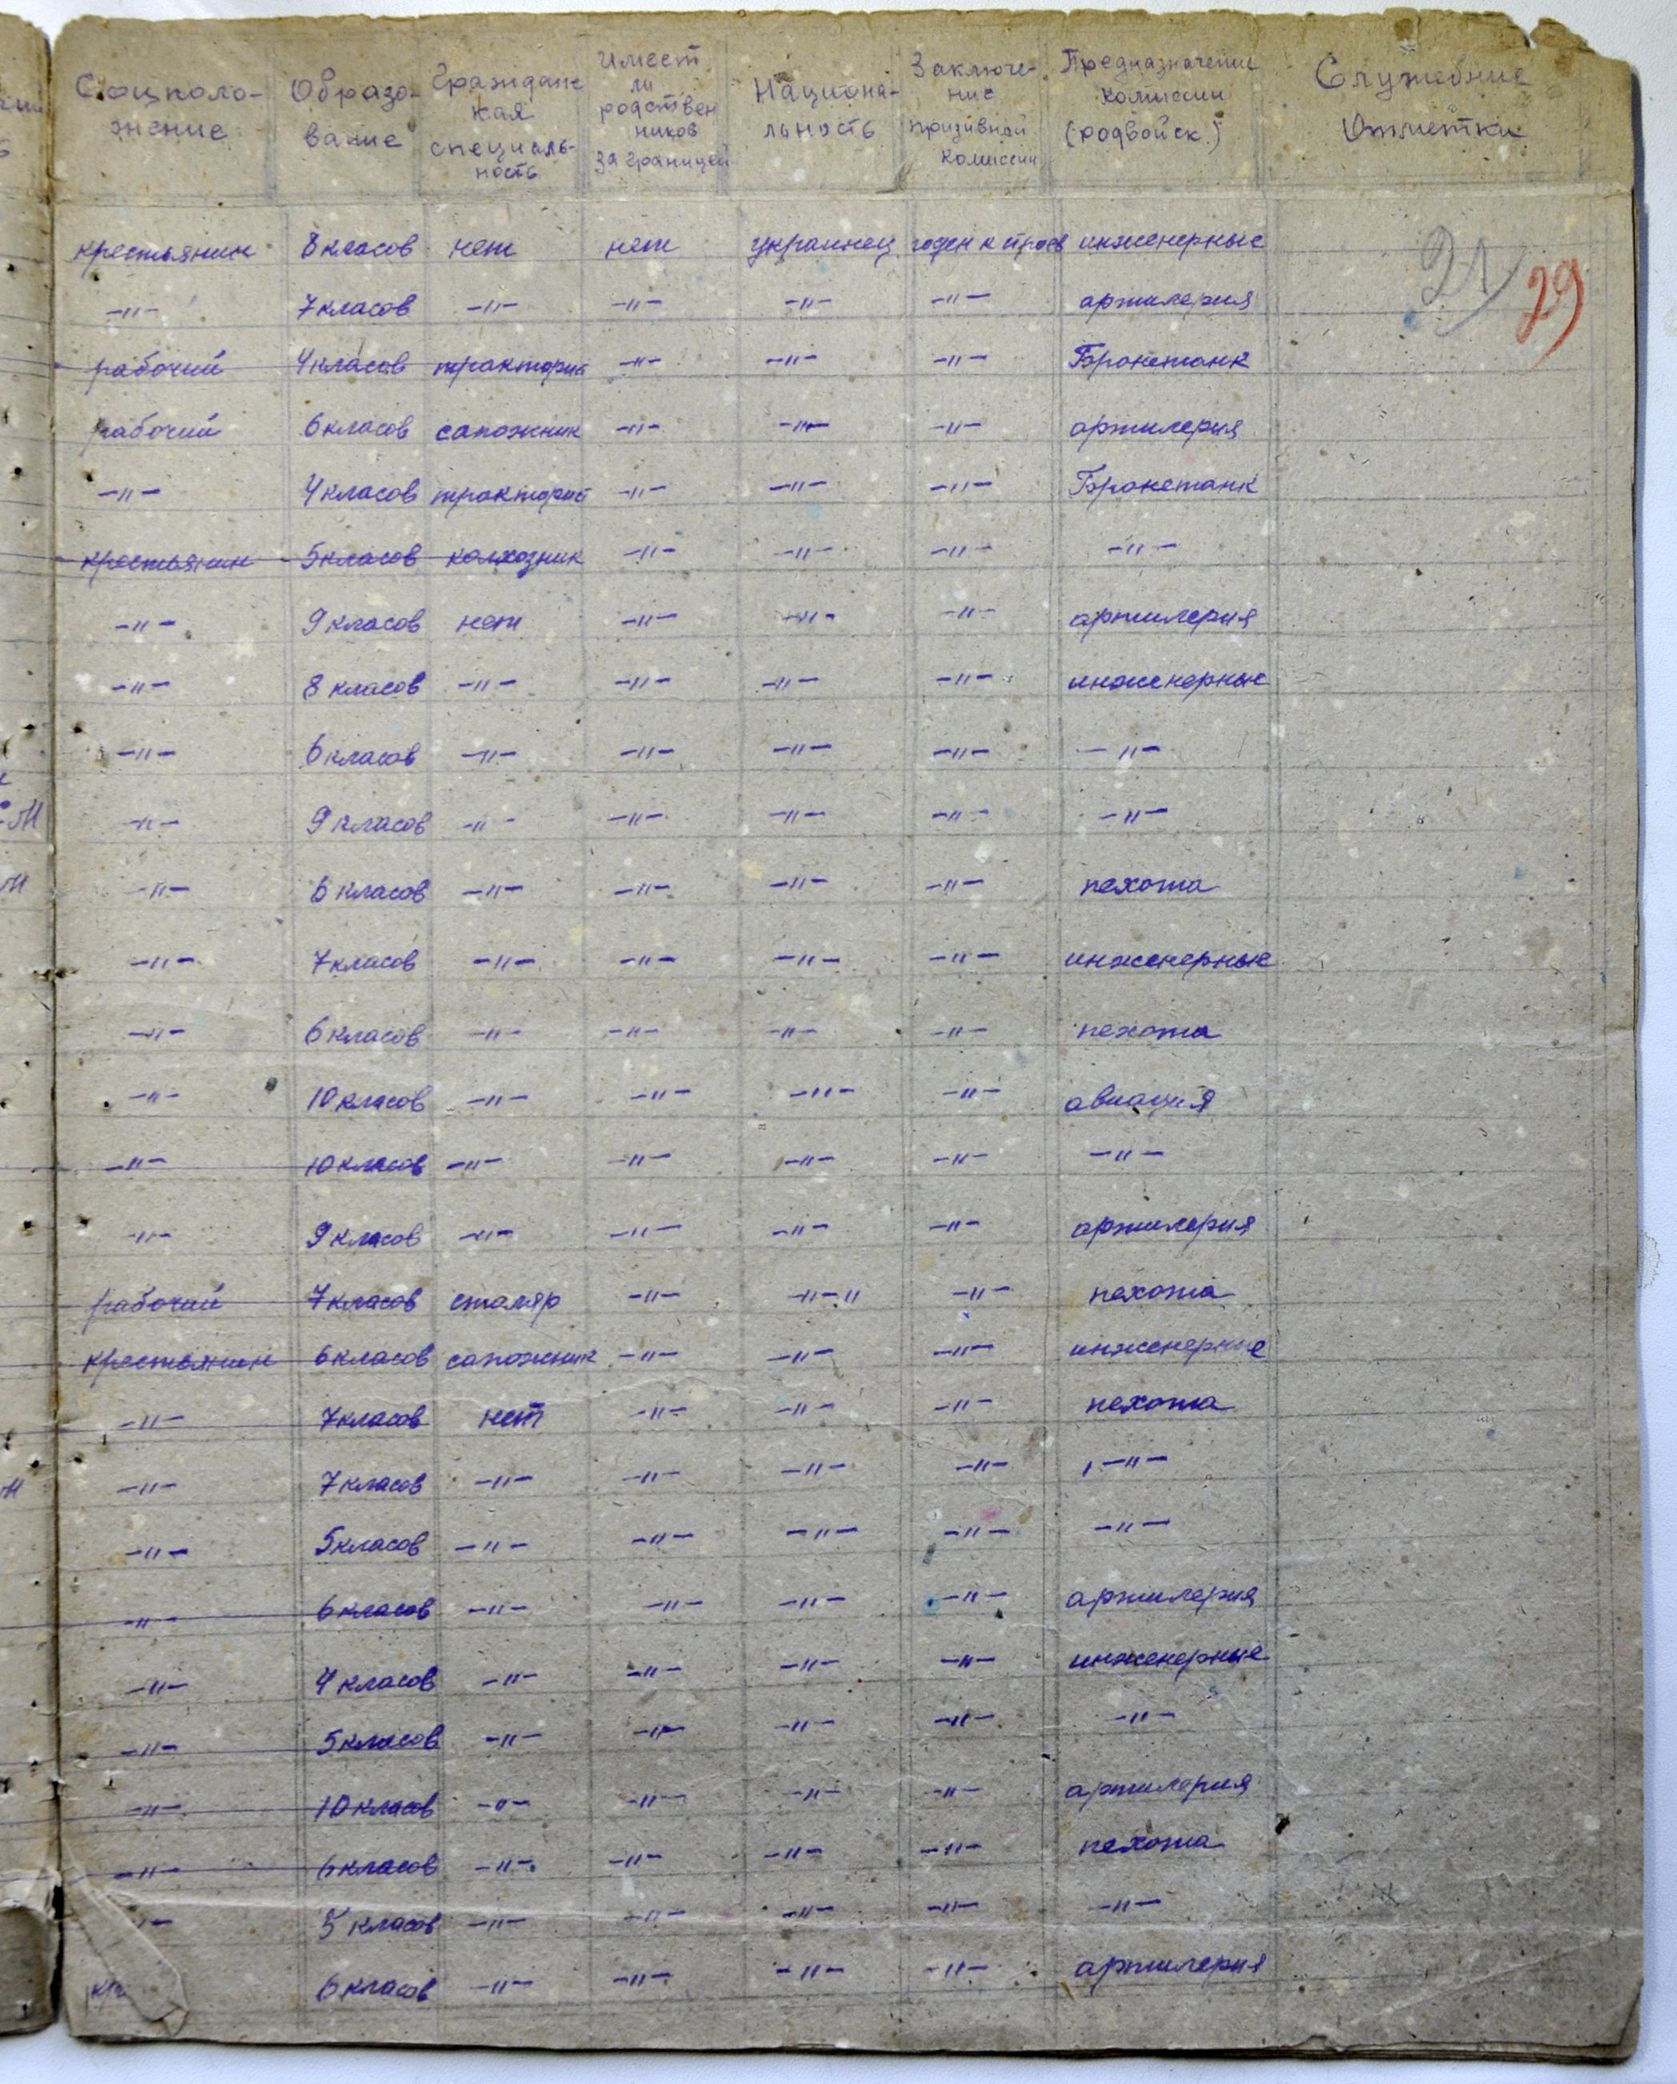 Соцполо- Образо- Гражданс Имеет Национа- Заключе- Предназначение Служебние
жение вание кая ли льность ние комиссии Отметки
специаль- родствен призивной (родвойск.)
ность ников комиссии
за границей
крестьянин 8 класов нет нет украинец годен к строев инженерные 21 29
-"- 7 класов -"- -"- -"- -"- артилерия
рабочий 4 класов тракторис -"- -"- -"- Бронетанк
рабочий 6 класов сапожник -"- -"- -"- артилерия
-"- 4 класов тракторис -"- -"- -"- Бронетанк
крестьянин 5 класов колхозник -"- -"- -"- -"-
-"- 9 класов нет -"- -"- -"- артилерия
-"- 8 класов -"- -"- -"- -"- инженерные
-"- 6 класов -"- -"- -"- -"- -"-
-"- 9 класов -"- -"- -"- -"- -"-
-"- 6 класов -"- -"- -"- -"- пехота
-"- 7 класов -"- -"- -"- -"- инженерные
-"- 6 класов -"- -"- -"- -"- пехота
-"- 10 класов -"- -"- -"- -"- авиация
-"- 10 класов -"- -"- -"- -"- -"-
-"- 9 класов -"- -"- -"- -"- артилерия
рабочий 7 класов столяр -"- -"-" -"- пехота
крестьянин 6 класов сапожник -"- -"- -"- инженерние
-"- 7 класов нет -"- -"- -"- пехота
-"- 7 класов -"- -"- -"- -"- -"-
-"- 5 класов -"- -"- -"- -"- -"-
-"- 6 класов -"- -"- -"- -"- артилерия
-"- 4 класов -"- -"- -"- -"- инженерные
-"- 5 класов -"- -"- -"- -"- -"-
-"- 10 класов -"- -"- -"- -"- артилерия
-"- 6 класов -"- -"- -"- -"- пехота
"- 5 класов -"- -"- -"- -"- -"-
6 класов -"- -"- -"- -"- артилерия